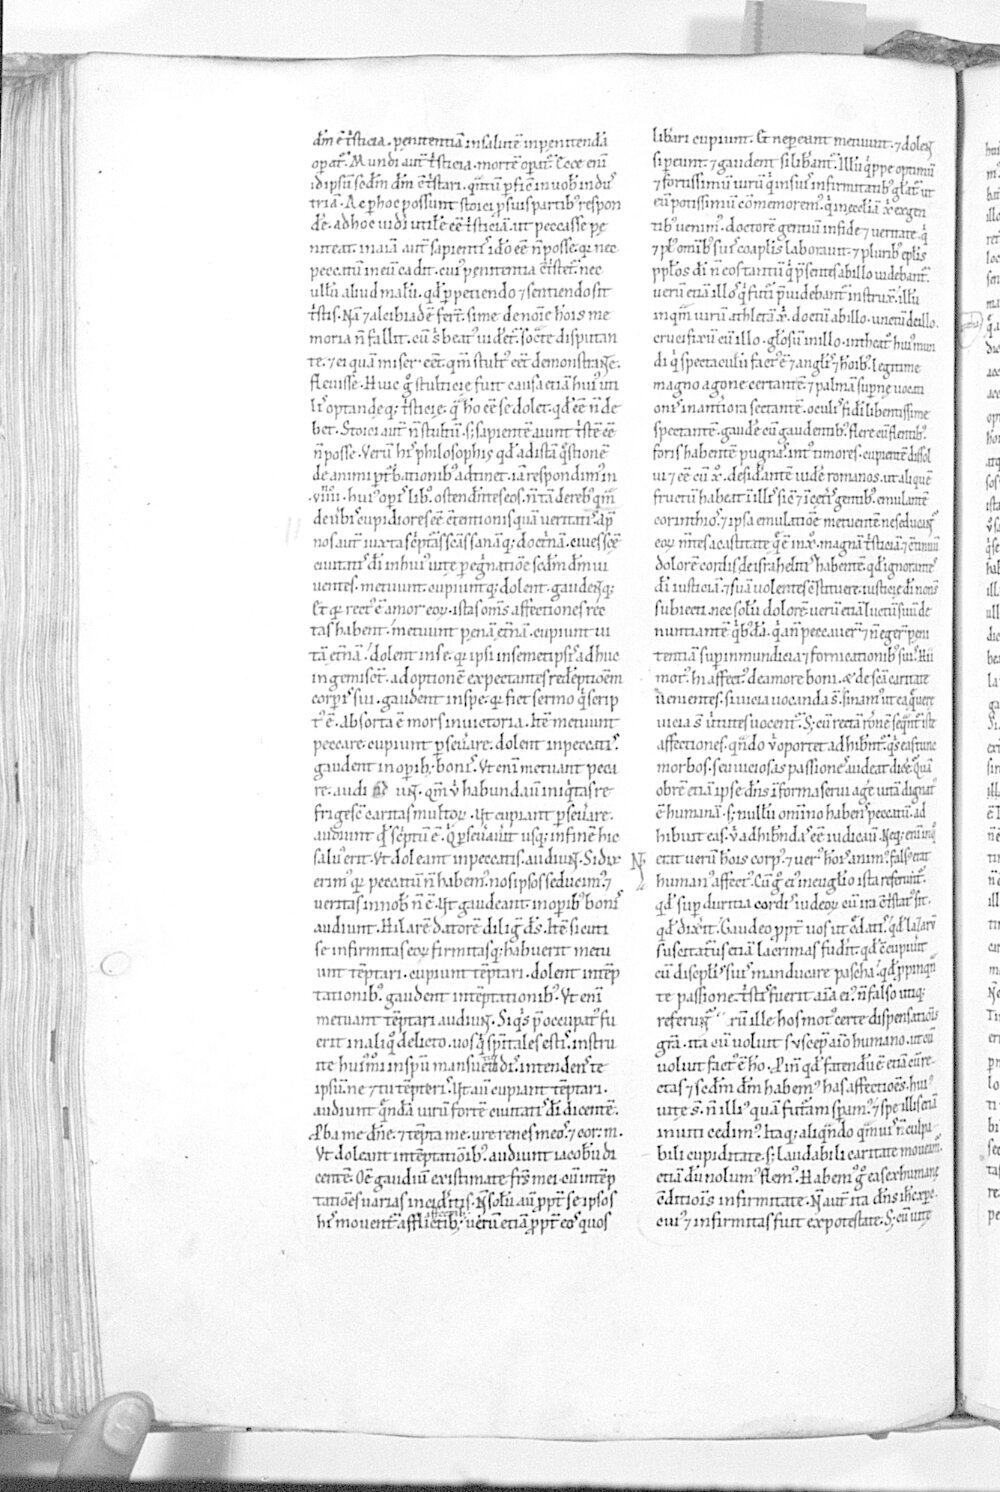 dm̄ ē tristicia. penitentiā in salutē inpenitendā
operat̄. Mundi aut̄ tristicia. mortē operat̄. Ecce enī
id ipsū scdm̄ dm̄ ꝯtristari. quātū perfic̄ in uob̄ indus
triā. Ac per hoc possunt stoici ꝑ suis partib; respon
dēre. ad hoc uidi utilē ēē tristiciā. ut peccasse pe
niteat. in aīa aut̄ sapientis ido ēē n̄ posse. qi nec
peccatū in eū cadit. cui penitentia ꝯtistet̄. nec
ullū aliud malū. qd̄ ꝑpetiendo ⁊ sentiendo sit
tristis. Nā ⁊ alcibiadē ferūt. si me de noīe hōis me
moria n̄ fallit. cū sibi beatus uideret̄. socrate disputan
te. ⁊ ei quā miser eēt. qm̄ stultus eēt demonstrante.
fleuisse. Huic g̊ stulticie fuit causa etiā huius uti
lis optandeq; tristicie. q̄ hō ēē se dolet. qd̄ ēē n̄ de
bet. Stoici aut̄ n̄ stultū. s; sapientē aiunt tristē ēē
n̄ posse. Verū his philosophis qd̄ ad istā q̄stionē
de animi ꝑturbationib; adtinet. iā respondim; in
viiii. huius operis libro. ostendentes eos. n̄ tā de reb; qm̄
de uerbis cupidiores ēē ꝯtentionis quā ueritatis. apd̄
nos aut̄ iuxta scripturas scās sanāq; doctrinā. ciues scē
ciuitatis dī in huius uite peregrinatiōe scdm̄ dm̄ ui
uentes. metuunt. cupiuntq;. dolent. gaudentq;.
Et qr̄ rectus ē amor eoꝝ. istas oms̄ affectiones rec
tas habent. metuunt penā eternā. cupiunt ui
tā eternā. dolent in se. qr̄ ipsi in semetipsis adhuc
ingemisct̄. adoptionē expectantes redēptiōem
corporis sui. gaudent in spe. qr̄ fiet sermo qi scrip
tus ē. Absorta ē mors in uictoria. Itē metuunt
peccare. cupiunt perseuerare. dolent in peccatis.
gaudent in operib; bonis. Vt enī metuant pecca
re. audiunt. qm̄ habundauit iniquitas re
frigescet caritas multoꝝ. Vt cupiant perseuerare.
audiunt qd̄ scriptū ē. Qi perseuerauit usq; in finē hic
saluus erit. Vt doleant in peccatis. audiunt. Si dix
erimus qr̄ peccatū n̄ habem; nos ipsos seducim; ⁊
ueritas in nob n̄ ē. Vt gaudeant in operib; bonis
audiunt. Hilarē datorē diligit ds̄. Itē sicuti
se infirmitas eoꝝ firmitasq; habuerit. metu
unt tēptari. cupiunt tēptari. dolent in tēp
tationib;. gaudent in tēptationib;. Vt enī
metuant tēptari audiunt. Siqis p̄occupatus fu
erit in aliq̊ delicto. uos qi spiritales estis. instru
ite huiusmodi in spū mansuetudinis. intendens te
ipsū. ne ⁊ tu tēpteris. Vt aut̄ cupiant tēptari.
audiunt quendā uirū fortē ciuitatis dī dicentē.
Proba me dn̄e. ⁊ tēpta me. ure renes meos. ⁊ cor. m.
Vt doleant in tēptatiōib;. audiunt iacobū di
centē. Oē gaudiū existimate frs̄ mei cū in tēp
tatiōes uarias incideritis. N̄ solū aut̄ ꝓpt̄ se ipsos
his mouent̄ affectib;. uerū etiā ꝓpt̄ eos quos
liberari cupiunt. Et ne pereant metuunt. ⁊ dolent
si pereunt. ⁊ gaudent si liberant̄. Illū quippe optimū
⁊ fortissimū uirū qi in suis infirmitatib; gl̄at̄. ut
eū potissimū comemorem;. qi in ecclīa xī ex gen
tib; uenim;. doctorē gentiū in fide ⁊ ueritate. qi
⁊ plus omnib; suis coapostolis laborauit. ⁊ plurib; eplis
pplos dī n̄ eos tantū qi p̄sentes ab illo uidebant̄.
uerū etiā illos qi futuri p̄uidebant̄ instruxit. illū
inqm̄ uirū athletā xī. doctū ab illo. unctū de illo.
crucifixū cū illo. gl̄osū in illo. in theatro huius mun
di qi spectaculū factus ē ⁊ anglis ⁊ hōib;. legitime
magno agone certantē. ⁊ palmā supernę uocati
onis in anteriora sectantē. oculis fidei libentissime
spectantē. gaudere cū gaudentib;. flere cū flentib;.
foris habentē pugnas. intus timores. cupientē dissol
ui ⁊ ēē cū xo. desiderantē uidere romanos. ut aliquē
fructū habeat in illis sic ⁊ in ceteris gentib;. emulantē
corinthios. ⁊ ipsa emulatiōe metuentē ne seducant̄
eoꝝ mentes a castitate quę ē in xo. magnā tristiciā ⁊ ꝯtinuū
dolorē cordis de israhelitis habentē. qd̄ ignorantes
dī iusticiā. ⁊ suā uolentes ꝯstituere. iusticie dī non s̄
subiecti. nec solū dolorē uerū etiā luctū suū de
nuntiantē quib;dā. qi ante peccauerunt ⁊ n̄ egerunt peni
tentiā super inmundicia ⁊ fornicationib; suis. Hii
motus. hi affectus de amore boni. ⁊ de scā caritate
uenientes. si uicia uocanda st̄. sinam; ut ea quę uere
uicia st̄ uirtutes uocent̄. S; cū rectā rōnem sequant̄ iste
affectiones. qndo ubi oportet adhibent̄. quis eas tunc
morbos. seu uiciosas passiones audeat dicere. Quā
obrē etiā ipse dn̄s in forma serui agere uitā dignatus
ē humanā. s; nullū omnino habens peccatū. ad
hibuit eas. ubi adhibendas ēē iudicauit. Neq; enī in quo
erat uerū hōis corpus. ⁊ uerus hōis animus. falsus erat
humanus affectus. Cū g̊ eius in euglio ista referunt̄.
qd̄ super duritia cordis iudeoꝝ cū ira ꝯtristatus sit.
qd̄ dixerit. Gaudeo ꝓpt̄ uos ut credatis. qd̄ lazarū
suscitaturus etiā lacrimas fudit. qd̄ ꝯcupiuit
cū discipulis suis manducare pascha. qd̄ ꝓpinquan
te passione. tristis fuerit aīa eius. n̄ falso utiq;
referunt̄. Verū ille hos motus. certe dispensatiōis
grā. ita cū uoluit suscepit aīo humano. ut cū
uoluit factus ē hō. Proin qd̄ fatendū ē etiā cū rec
tas ⁊ scdm̄ dm̄ habem; has affectiōes. huius
uite st̄. n̄ illius quā futurā speram;. ⁊ sepe illis etiā
inuiti cedim;. Itaq; aliqndo qmuis n̄ culpa
bili cupiditate. s; laudabili caritate moueam̄.
etiā dū nolum; flem;. Habem; g̊ eas ex humanę
ꝯditiōis infirmitate. N̄ aut̄ ita dn̄s ih̄c. xpc.
cuius ⁊ infirmitas fuit ex potestate. S; cū uitę